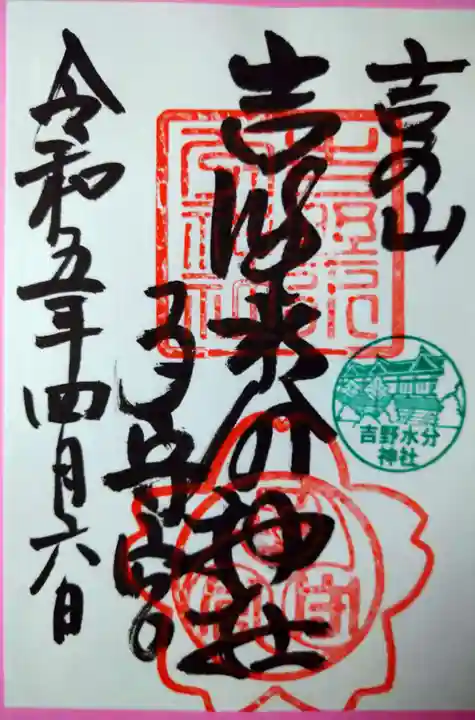 吉の山
吉野水分神社
子守宮
令和五年四月六日
吉野水分
神社